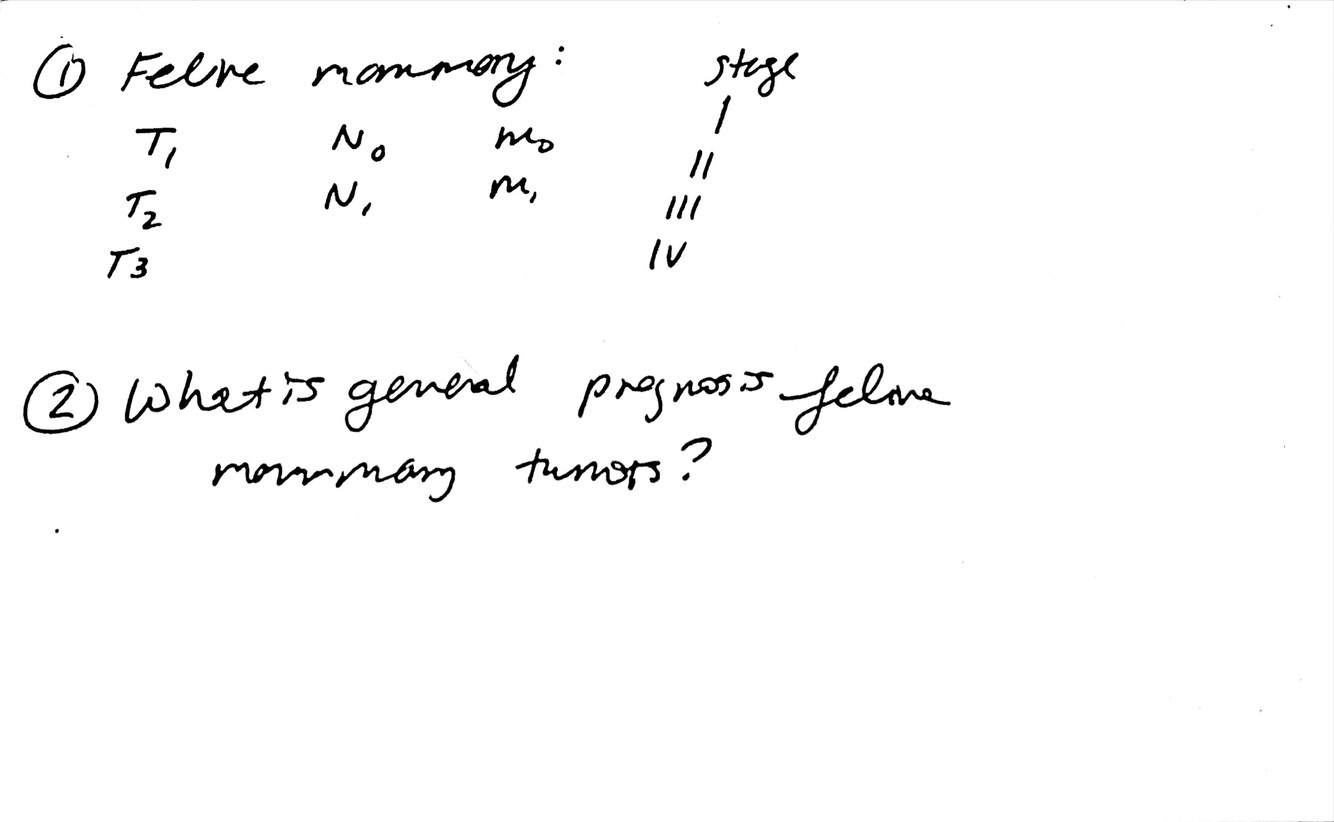 ① Feline mammary: stage
I
T1 N0 M0
II
T2 N1 M1
III
T3 IV
② What is general prognosis feline
mammary tumors?